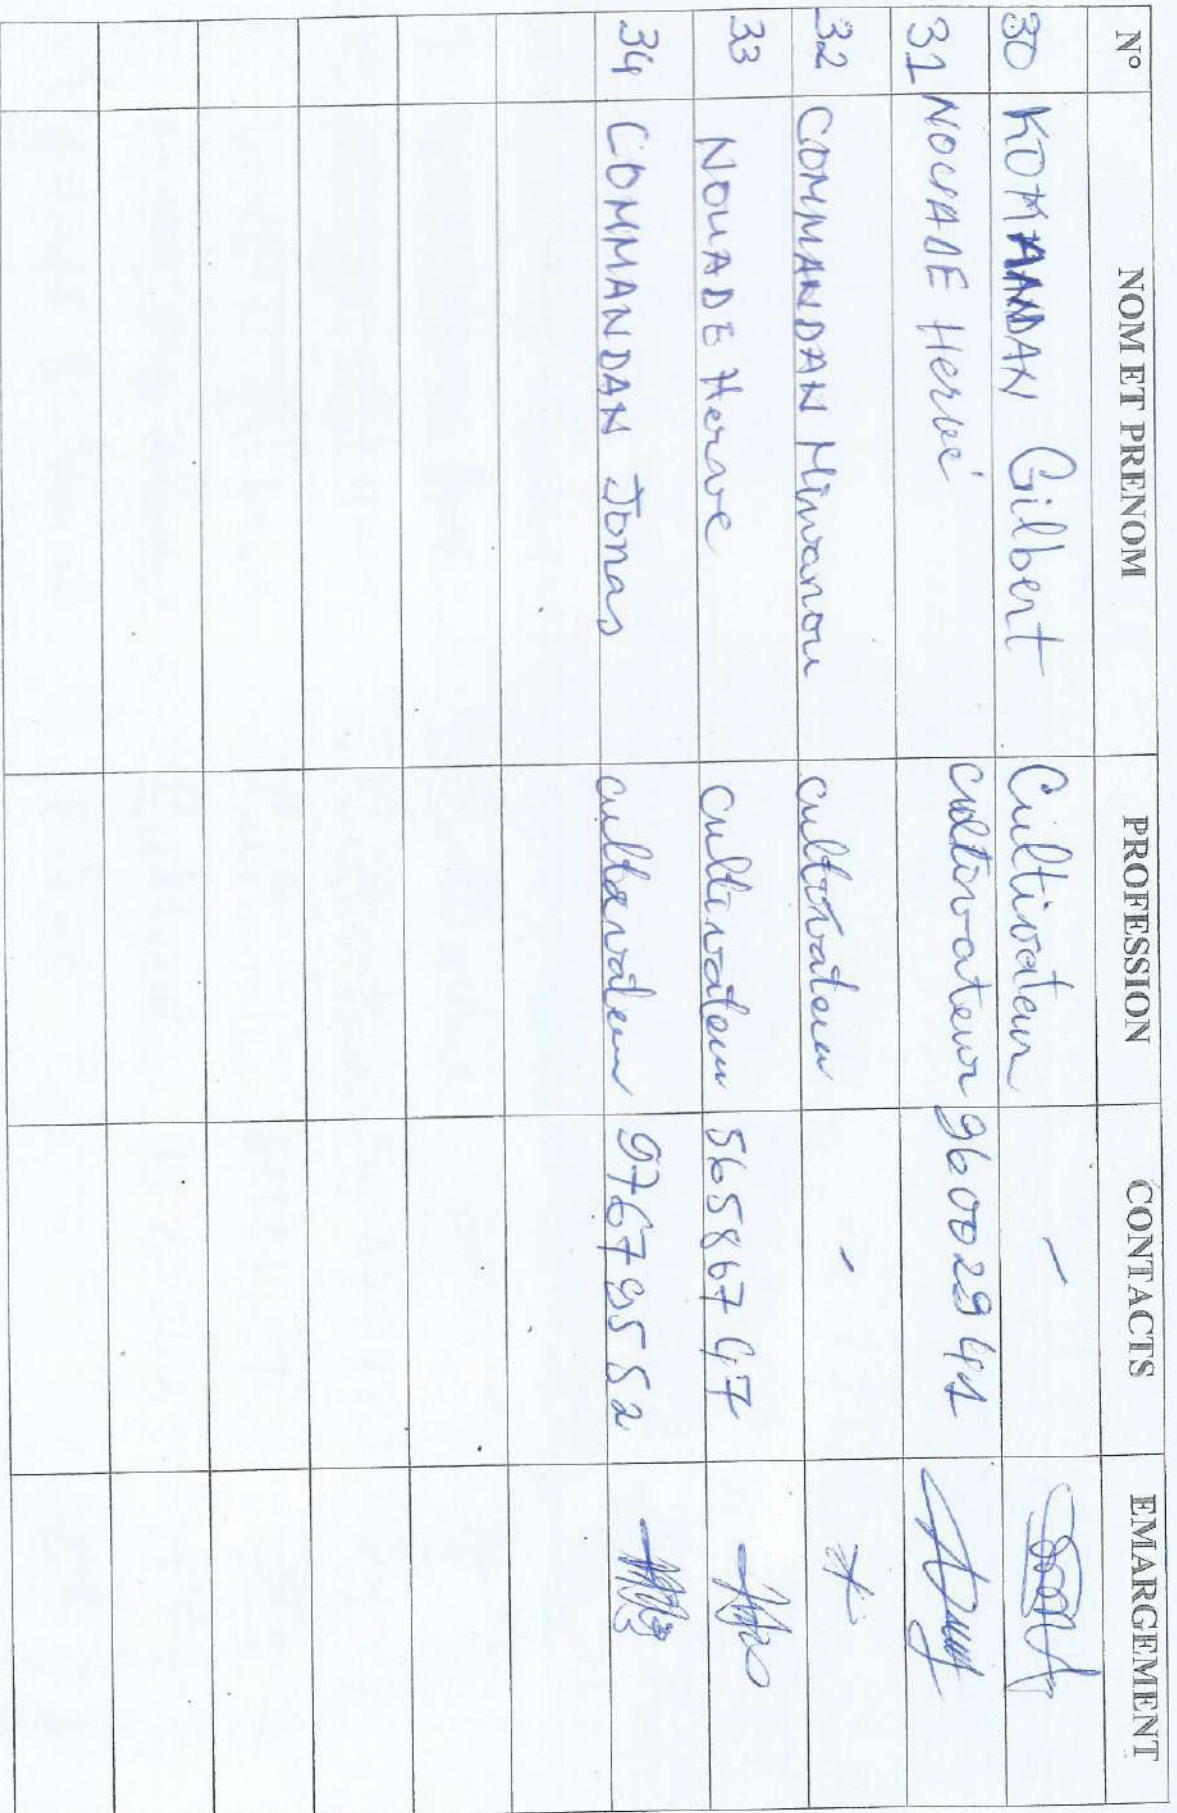 N° NOM ET PRENOM PROFESSION CONTACTS EMARGEMENT
30 KOMANDAN Gilbert Cultivateur -
31 NOUADE Hervé cultivateur 96002941
32 COMMANDAN Minvanou cultivateur -
33 NOUADE Herve cultivateur 56586747
34 COMMANDAN Jonas cultivateur 97679552